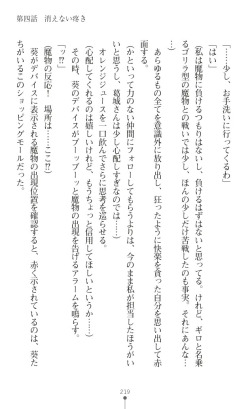 第四話　消えない疼き
「……少し、お手洗いに行ってくるわ」
「はい」
（私は魔物に負けるつもりはないし、負けるはずはない。けれど、ギロと名乗
るゴリラ型の魔物との戦いで、ほんの少しだけ苦戦したのも事実。それにあんな…
…）
あらゆるもの全てを意識外に放り出し、狂ったように快楽を貪った自分を思い出し赤
面する。
（かといって力のない仲間にフォローしてもらうよりは、今のまま私が担当したほうがい
いと思うし、葛城さんは少し心配しすぎなのでは……）
オレンジジュースを一口飲んでさらに思考を巡らせる。
（心配してくれるのは嬉しいけれど、もうちょっと信用してほしいというか……）
その時、葵のデバイスがブーッブーッと魔物の出現を告げるアラームを鳴らす。
「ッ!?」
（魔物の反応！　場所は……ここ!?）
葵がデバイスに表示される魔物の出現位置を確認すると、赤く示されているのは、葵た
ちがいるこのショッピングモールだった。
219